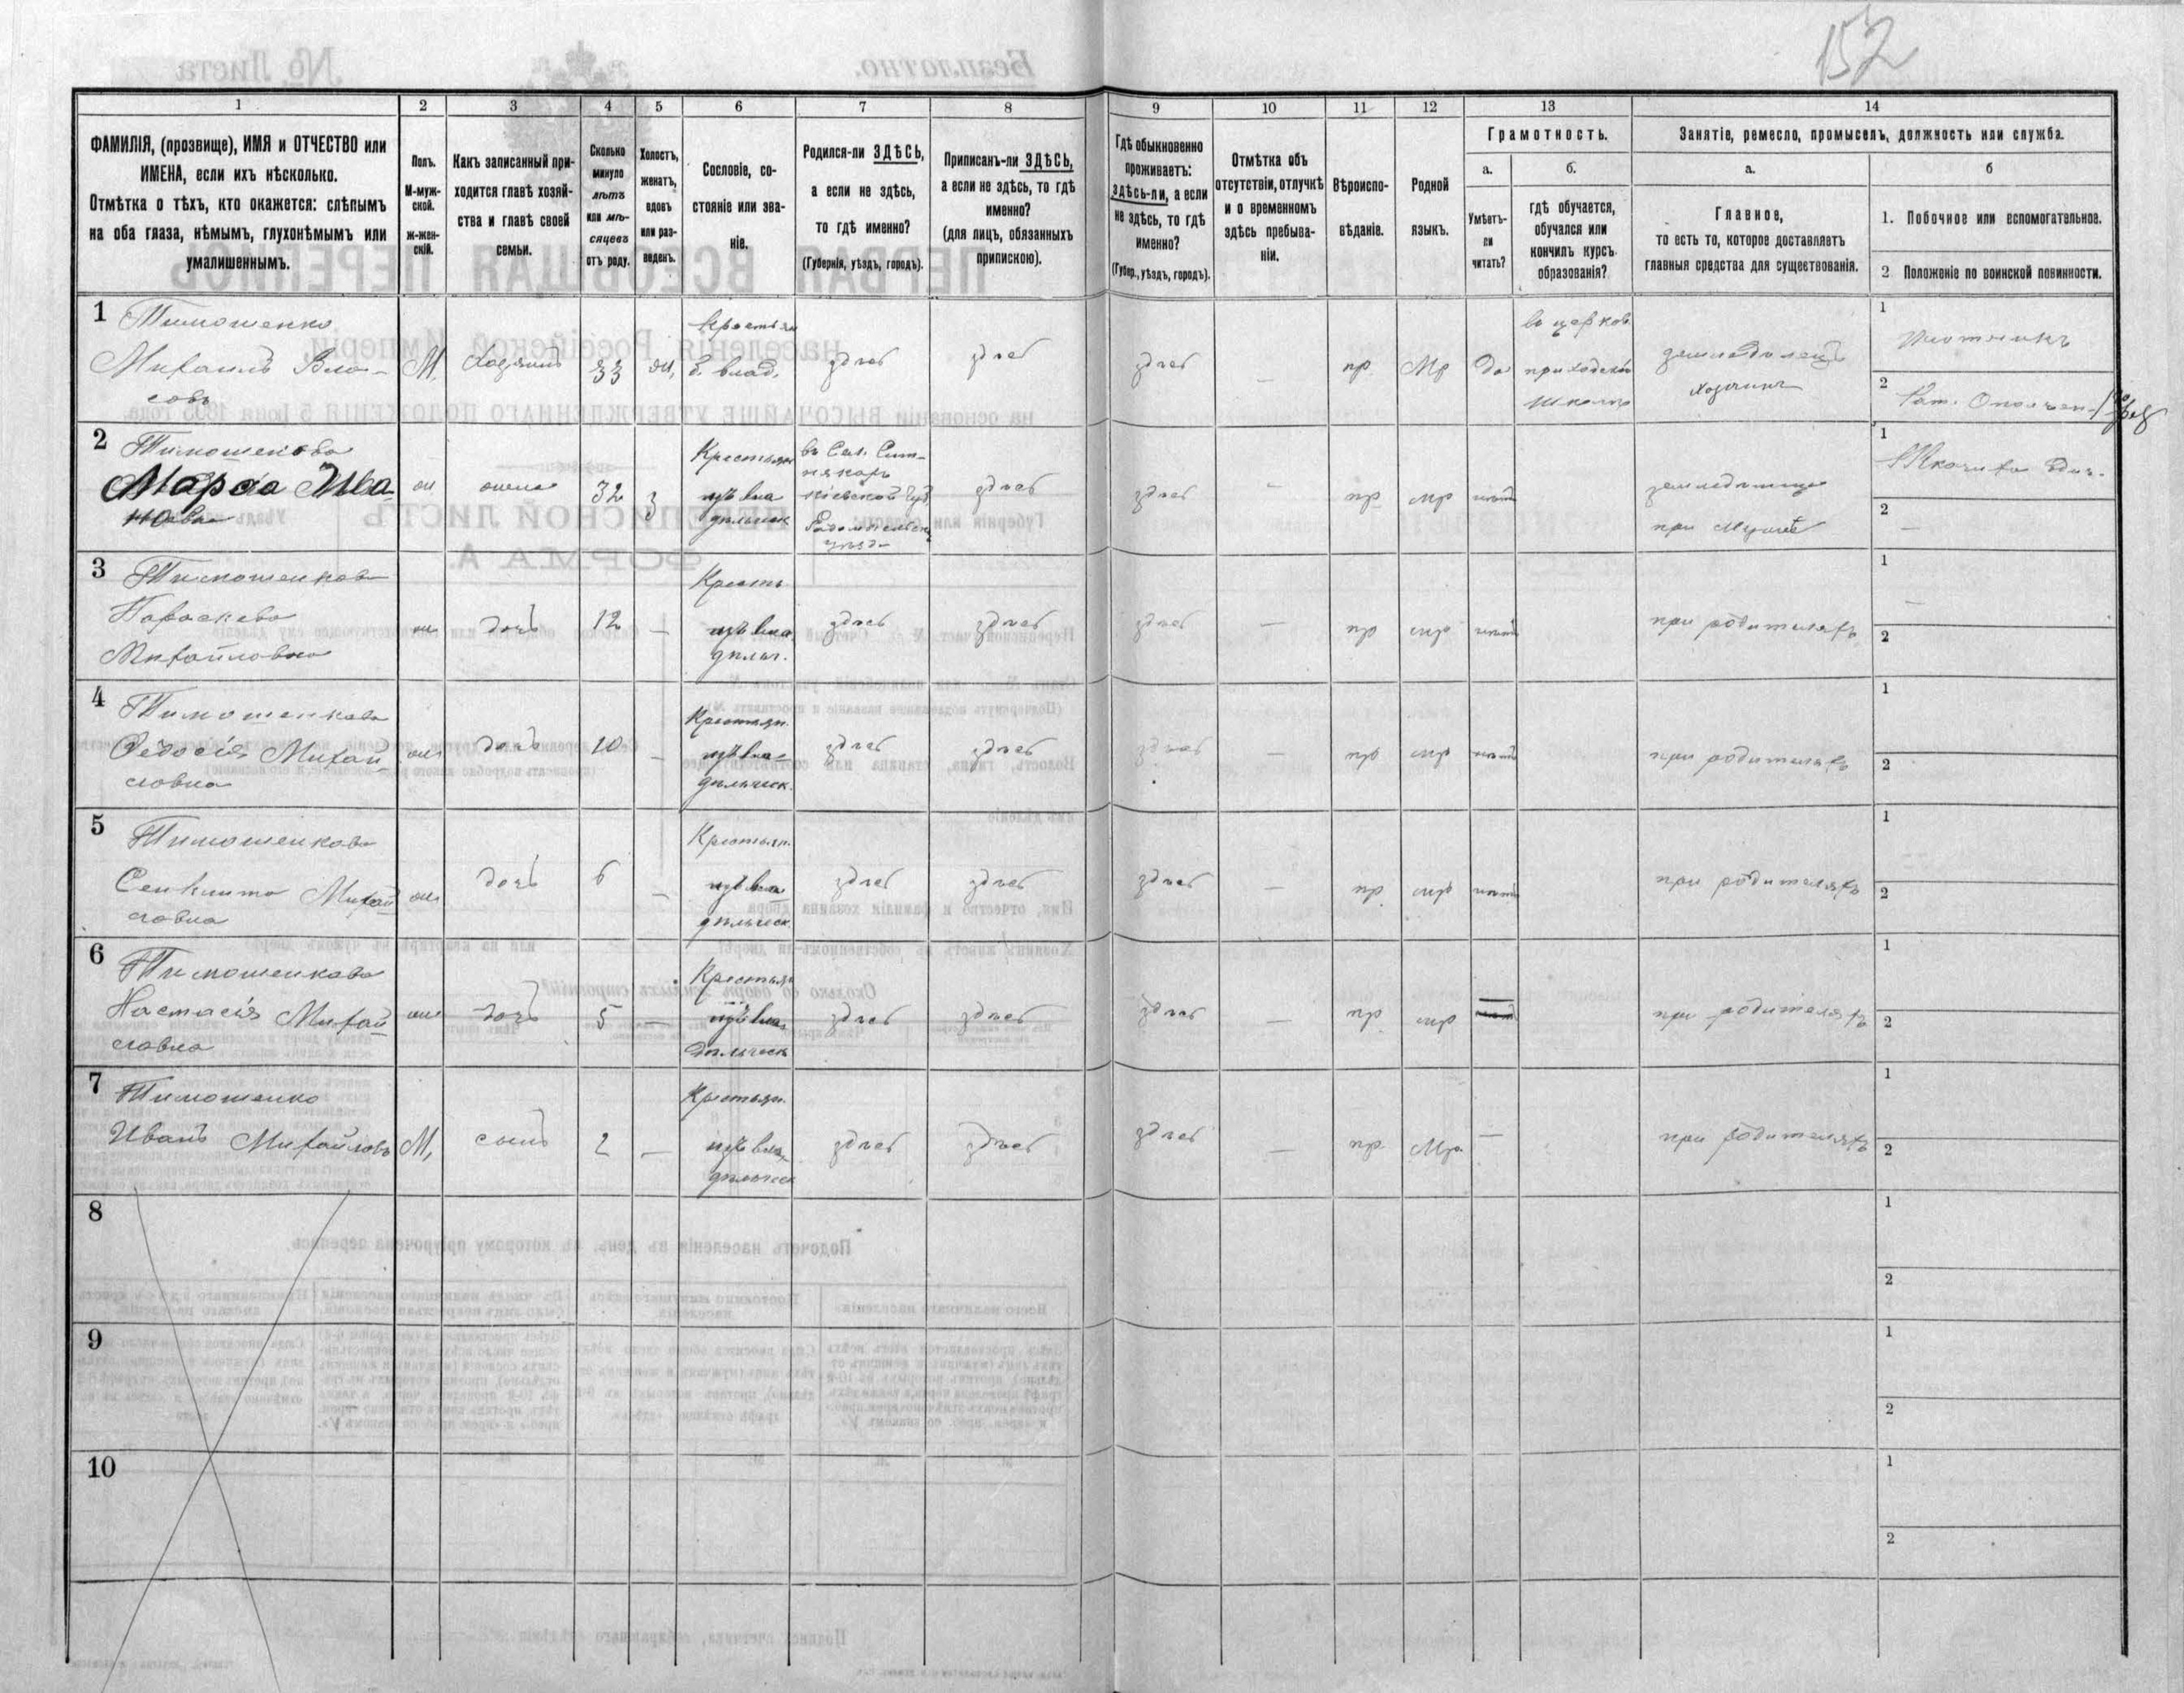 152
1
2
3
4
5
6
7
8
9
10
11
12
13
14
ФАМИЛІЯ, (прозвище), ИМЯ и ОТЧЕСТВО или
ИМЕНА, если ихъ нѣсколько.
Отмѣтка о тѣхъ, кто окажется: слѣпымъ
на оба глаза, нѣмымъ, глухонѣмымъ или
умалишеннымъ.
Полъ.
М-муж-
ской.
ж-жен-
скій.
Какъ записанный при-
ходится главѣ хозяй-
ства и главѣ своей
семьи.
Сколько
минуло
лѣтъ
или мѣ-
сяцевъ
отъ роду.
Холостъ,
женатъ,
вдовъ
или раз-
веденъ.
Сословіе, со-
стояніе или зва-
ніе.
Родился-ли ЗДѢСЬ,
а если не здѣсь,
то гдѣ именно?
(Губернія, уѣздъ, городъ).
Приписанъ-ли ЗДѢСЬ,
а если не здѣсь, то гдѣ
именно?
(для лицъ, обязанныхъ
припискою).
Гдѣ обыкновенно
проживаетъ:
здѣсь-ли, а если
не здѣсь, то гдѣ
именно?
(Губер., уѣздъ, городъ).
Отмѣтка объ
отсутствіи, отлучкѣ
и о временномъ
здѣсь пребыва-
ніи.
Вѣроиспо-
вѣданіе.
Родной
языкъ.
Грамотность.
а.
Умѣетъ-
ли
читать?
б.
гдѣ обучается,
обучался или
кончилъ курсъ
образованія?
Занятіе, ремесло, промыселъ, должность или служба.
а.
Главное,
то есть то, которое доставляетъ
главныя средства для существованія.
б
1. Побочное или вспомогательное.
2 Положеніе по воинской повинности.
1 Тимошенко
Михаилъ Вла-
совъ
М,
Хозяинъ
33
ж,
Крестьян
б. влад.
здѣсь
здѣсь
здѣсь
—
пр.
Мр
Да
въ церков.
приходской
школѣ
земледѣлецъ
хозяинъ
1
Плотникъ
2
Рат. Ополчен.
2 Тимошенкова
Марфа Ива
нова
ж
жена
32
з
Крестьян
изъ вла
дѣльческ
въ Сел.
Кіевской Губ.
Радомысльск
уѣзда
здѣсь
здѣсь
—
пр
мр
нѣтъ
земледѣлица
при мужѣ
1
2
—
3 Тимошенкова
Параскева
Михайловна
ж
дочь
12
—
Крестъ
изъ вла
дѣльч.
здѣсь
здѣсь
здѣсь
—
пр
мр
нѣтъ
при родителяхъ
1
—
2
4 Тимошенкова
Ѳедосія Михай
ловна
ж
дочь
10
—
Крестьян.
изъ вла-
дѣльческ.
здѣсь
здѣсь
здѣсь
—
пр
мр
нѣтъ
при родителяхъ
1
2
5 Тимошенкова
Сенклита Михай
ловна
ж
дочь
6
—
Крестьян.
изъ вла
дѣльческ.
здѣсь
здѣсь
здѣсь
—
пр.
мр
нѣтъ
при родителяхъ
1
2
6 Тимошенкова
Настасія Михай
ловна
ж
дочь
5
—
Крестьян
изъ вла
дѣльческ
здѣсь
здѣсь
здѣсь
—
пр
мр
—
при родителяхъ
1
2
7 Тимошенко
Иванъ Михайловъ
М,
сынъ
2
—
Крестьян.
изъ вла
дѣльческ
здѣсь
здѣсь
здѣсь
—
пр.
Мр.
—
при родителяхъ
1
2
8
1
2
9
1
2
10
1
2